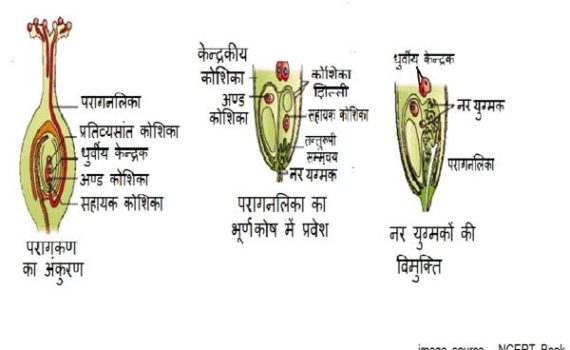 परागनलिका
प्रतिव्यसांत कोशिका
धुर्वीय केन्द्रक
अण्ड कोशिका
सहायक कोशिका
परागकण
का अंकुरण
केन्द्रकीय
कोशिका
अण्ड
कोशिका
कोशिका
झिल्ली
सहायक कोशिका
तन्तुरुपी
सम्मुचय
नर युग्मक
परागनलिका का
भूर्णकोष में प्रवेश
धुर्वीय केन्द्रक
नर युग्मक
परागनलिका
नर युग्मकों की
विमुक्ति
image source - NCERT Book